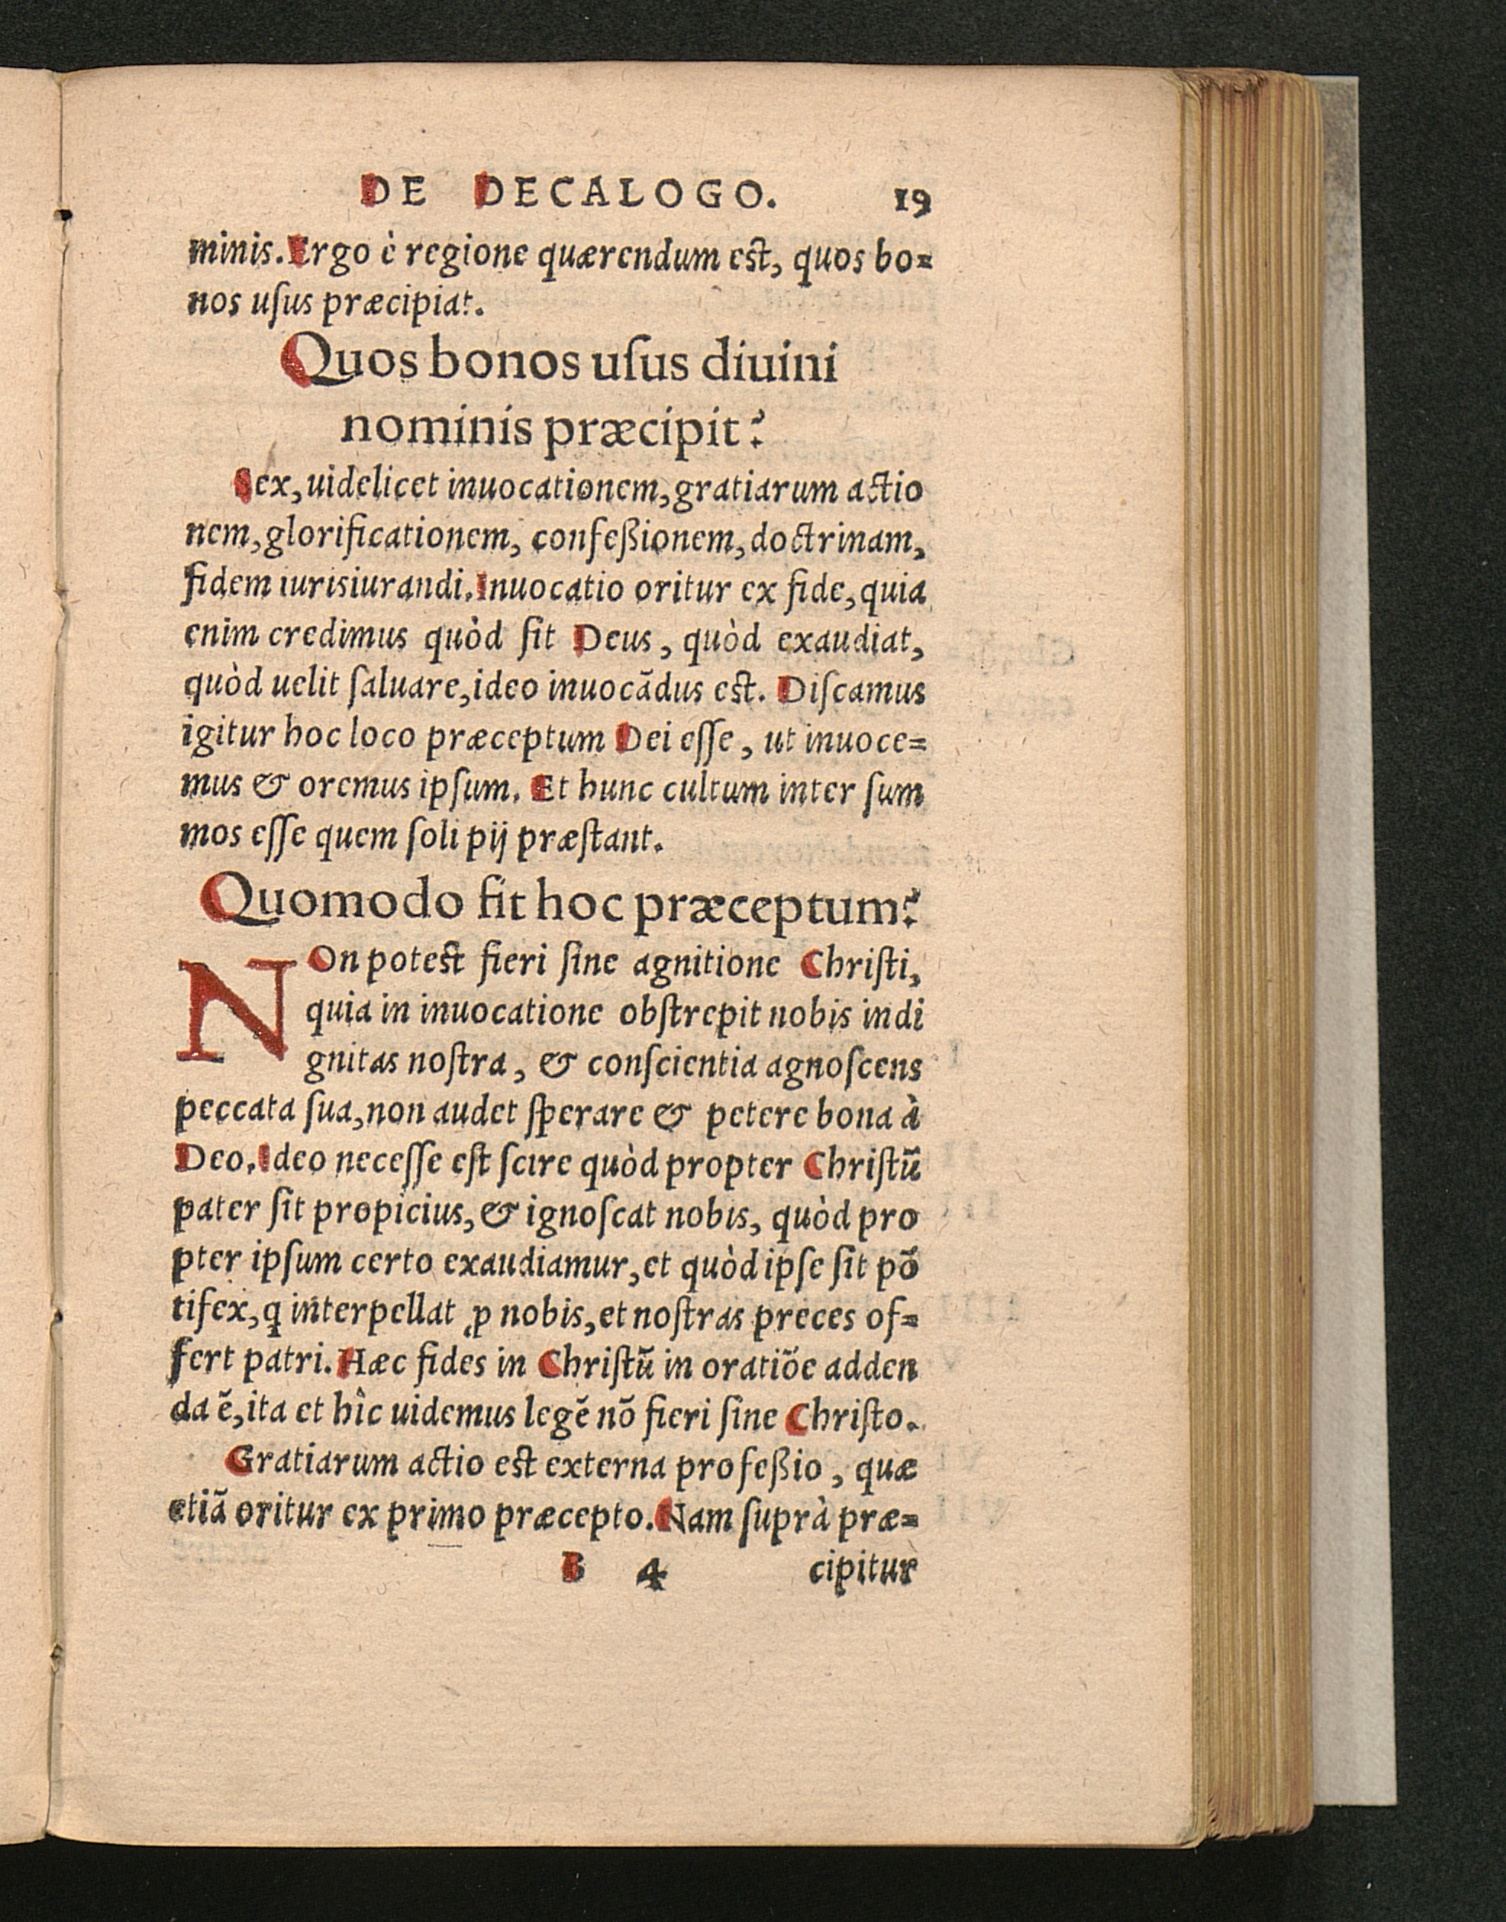 DE DECALOGO. 19
minis. Ergo è regione quærendum est, quos bo=
nos uſus præcipiat.
Quos bonos uſus diuini
nominis præcipit?
Sex, uidelicet inuocationem, gratiarum actio
nem, glorificationem, confeßionem, doctrinam,
fidem iurisiurandi. Inuocatio oritur ex fide, quia
enim credimus quòd ſit Deus, quòd exaudiat,
quòd uelit ſaluare, ideo inuocãdus est. Diſcamus
igitur hoc loco præceptum Dei eſſe, ut inuoce=
mus & oremus ipſum. Et hunc cultum inter ſum
mos eſſe quem ſoli pij præſtant.
Quomodo fit hoc præceptum?
NOn potest fieri ſine agnitione Chriſti,
quia in inuocatione obſtrepit nobis indi
gnitas noſtra, & conſcientia agnoſcens
peccata ſua, non audet ſperare & petere bona à
Deo. Ideo neceſſe eſt ſcire quòd propter Chriſtũ
pater ſit propicius, & ignoſcat nobis, quòd pro
pter ipſum certo exaudiamur, et quòd ipſe ſit põ
tifex, q interpellat ꝓ nobis, et noſtras preces of=
fert patri. Hæc fides in Chriſtũ in oratiõe adden
da ẽ, ita et hîc uidemus legẽ nõ fieri ſine Chriſto.
Gratiarum actio est externa profeßio, quæ
etiã oritur ex primo præcepto. Nam ſuprà præ=
B 4 cipitur